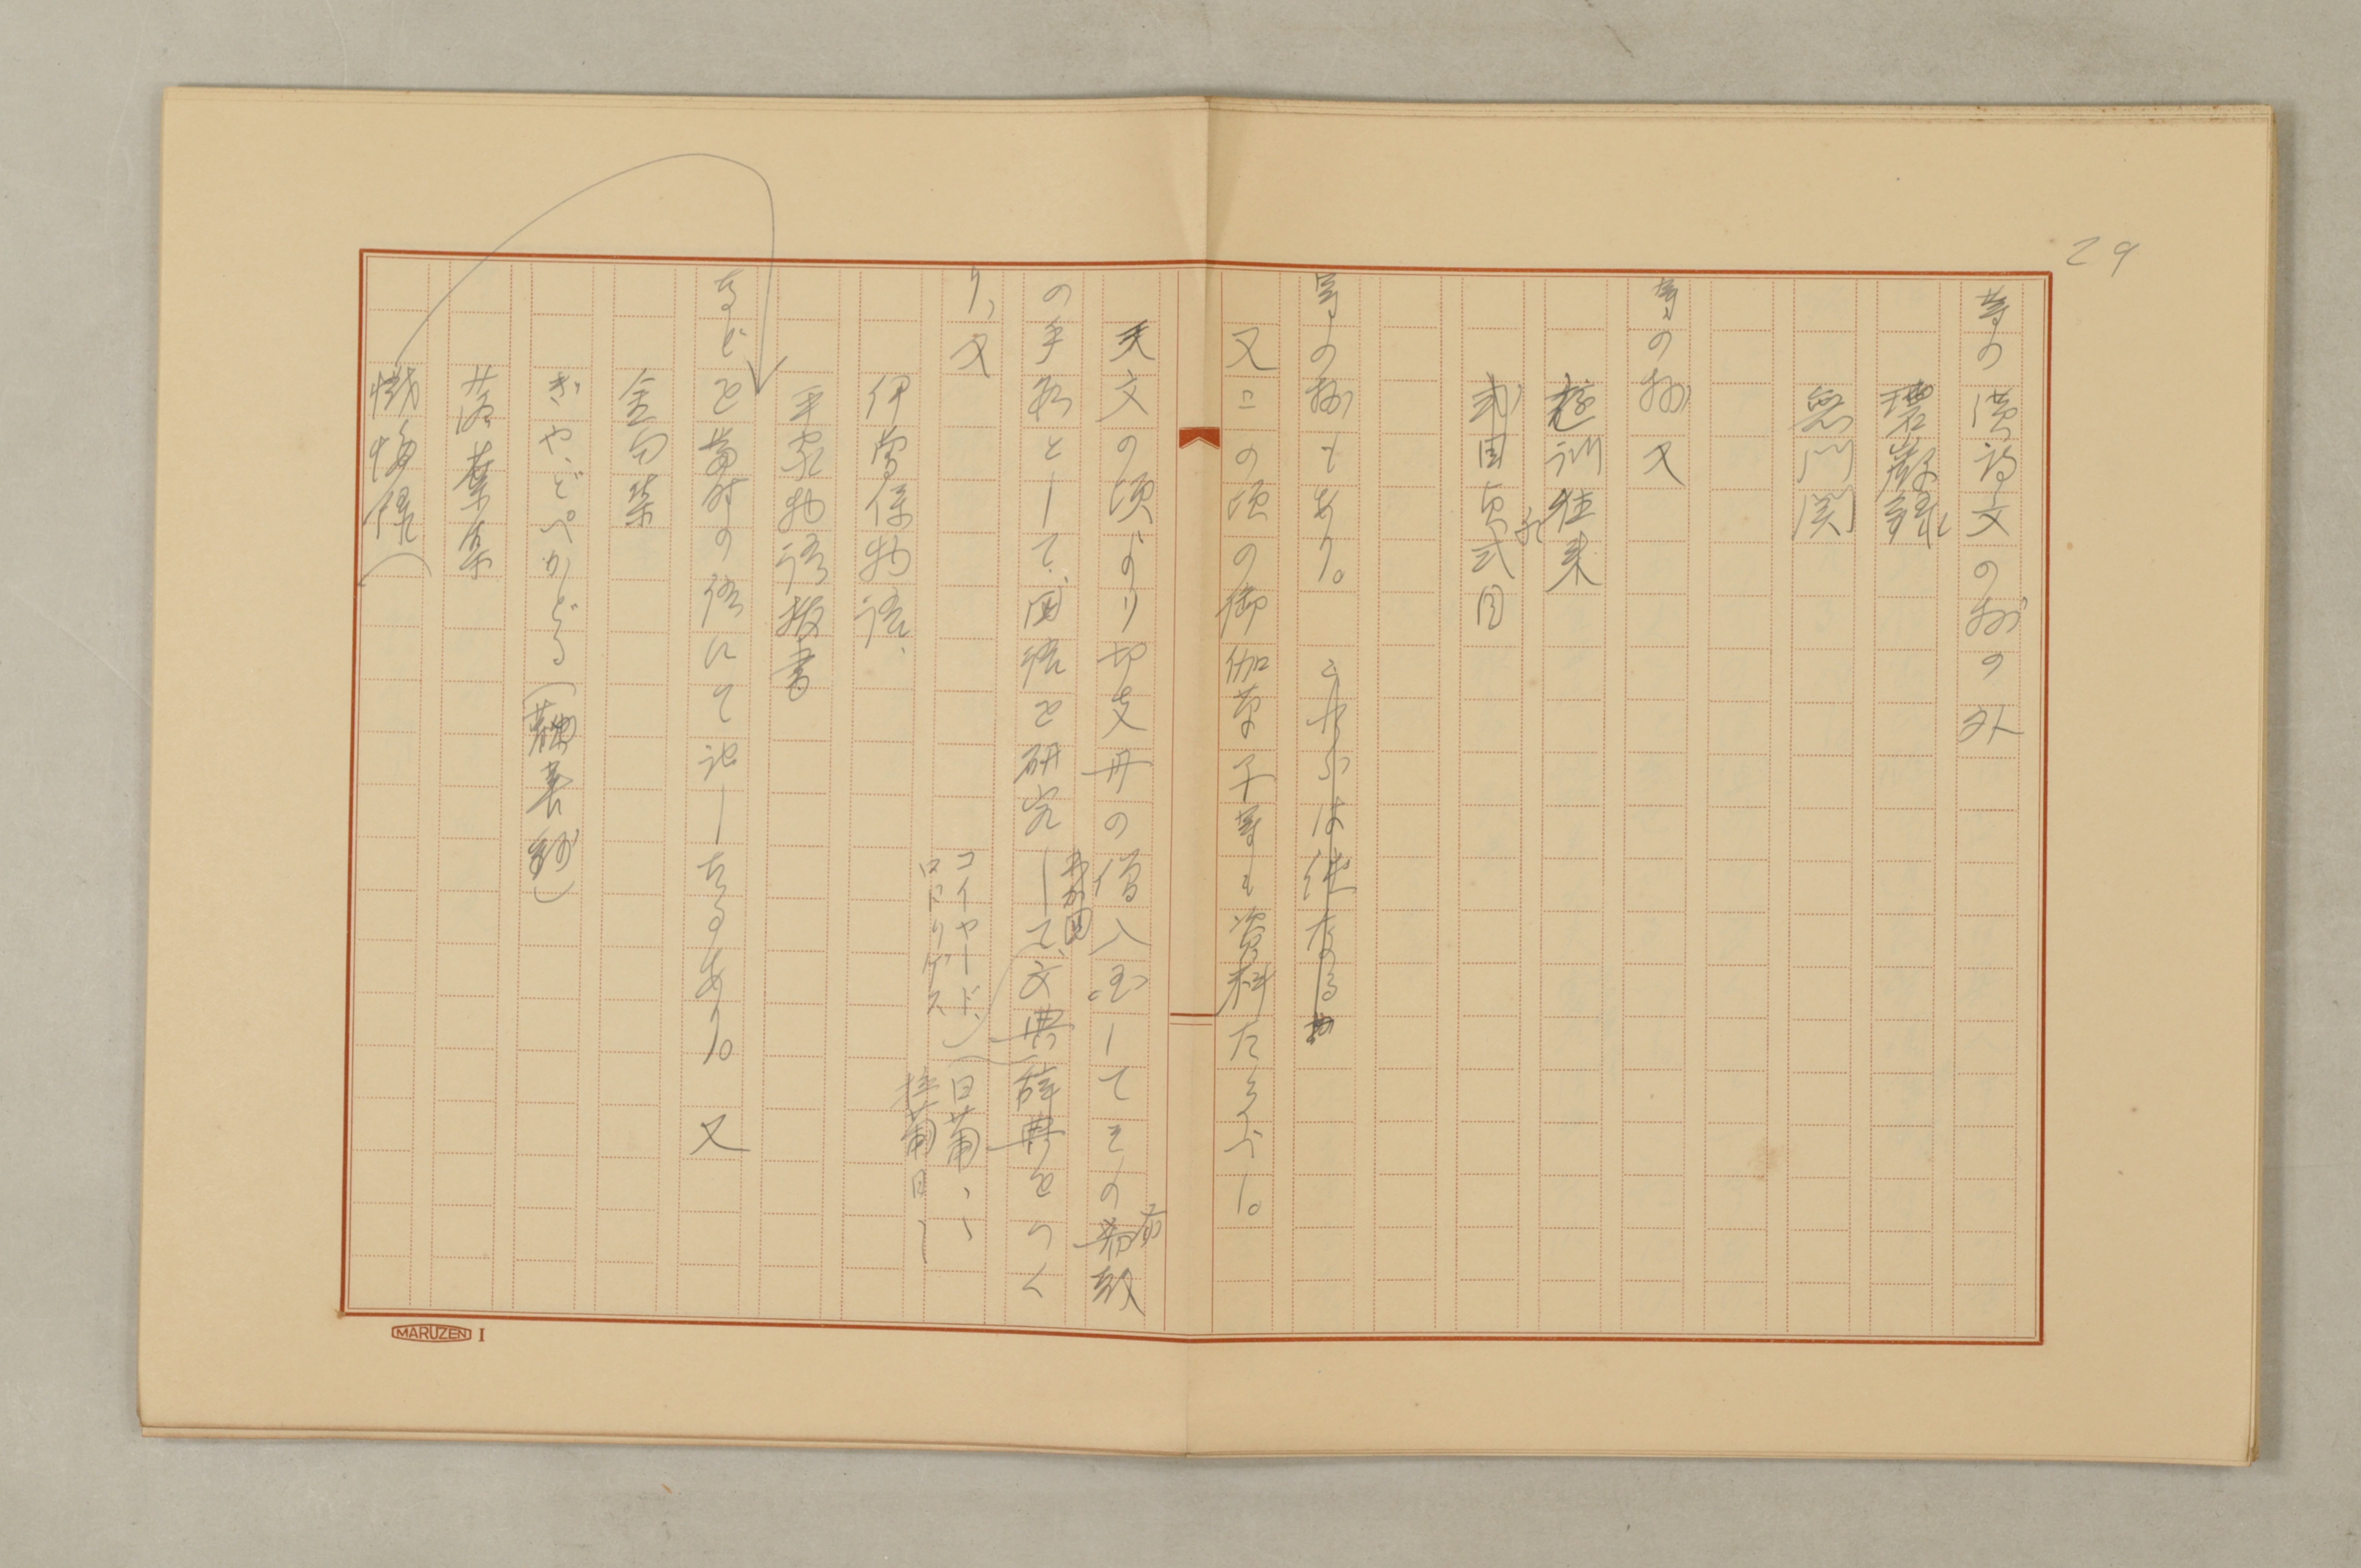 29
等の漢詩文の抄の外
碧巌録
無門関
等の抄又
庭訓往来
武田貞永式目
等の抄もあり。
又この頃の御伽草子等も資料たるべし。
天文の頃より切支丹の僧入国してその布教
の手段として、わが国語を研究して、文典辞典をつく
り、又
コイヤード、
ロドリゲス
日葡、
拉葡日
伊曽保物語、
平家物語抜書
などを当時の俗にて記したるあり。 又
金句集
ぎやどぺかどる(鞠養鈔)
落葉集
懺悔録
MARUZEN I